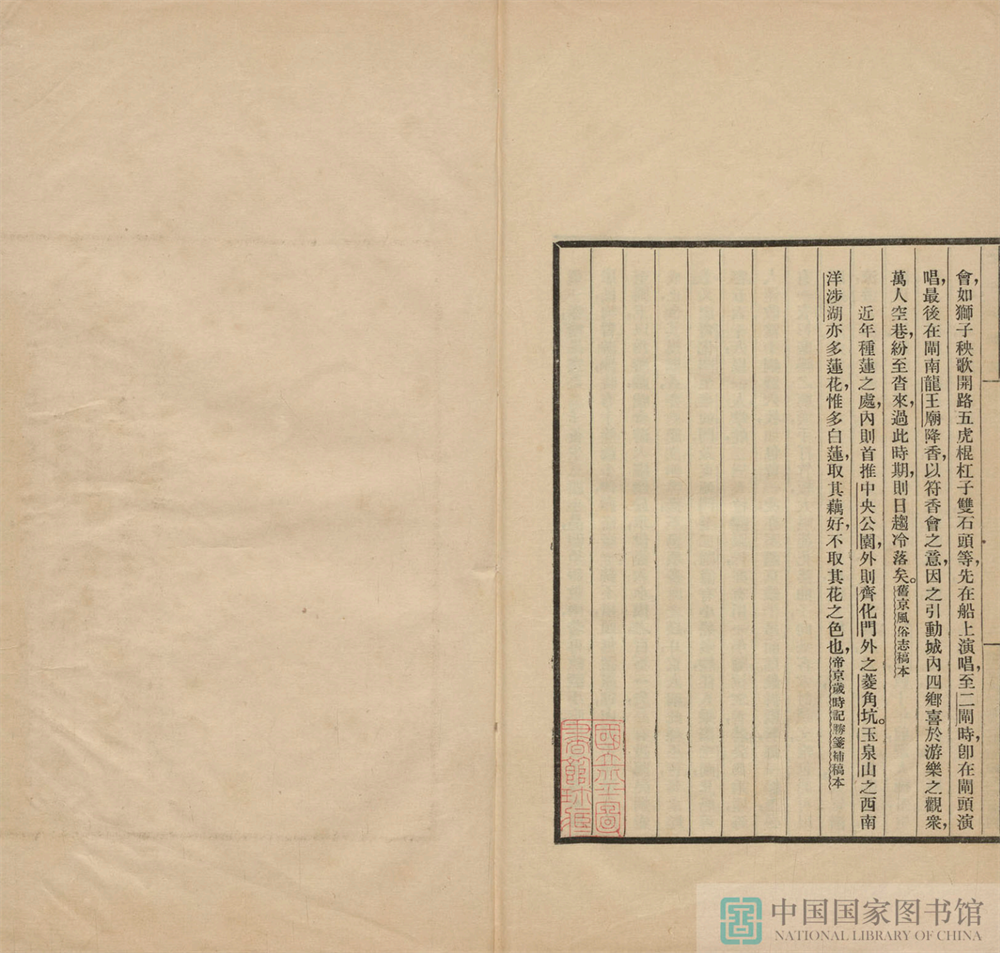 會，如獅子秧歌開路五虎棍杠子雙石頭等，先在船上演唱，至二閘時，卽在閘頭演
唱，最後在閘南龍王廟降香，以符香會之意，因之引動城內四鄉喜於游樂之觀衆，
萬人空巷，紛至沓來，過此時期，則日趨冷落矣。舊京風俗志稿本
近年種蓮之處，內則首推中央公園，外則齊化門外之菱角坑。玉泉山之西南
洋涉湖亦多蓮花，惟多白蓮，取其藕好，不取其花之色也，帝京歲時記勝箋補稿本
國立北平圖
書館珍藏
中国国家图书馆
NATIONAL LIBRARY OF CHINA